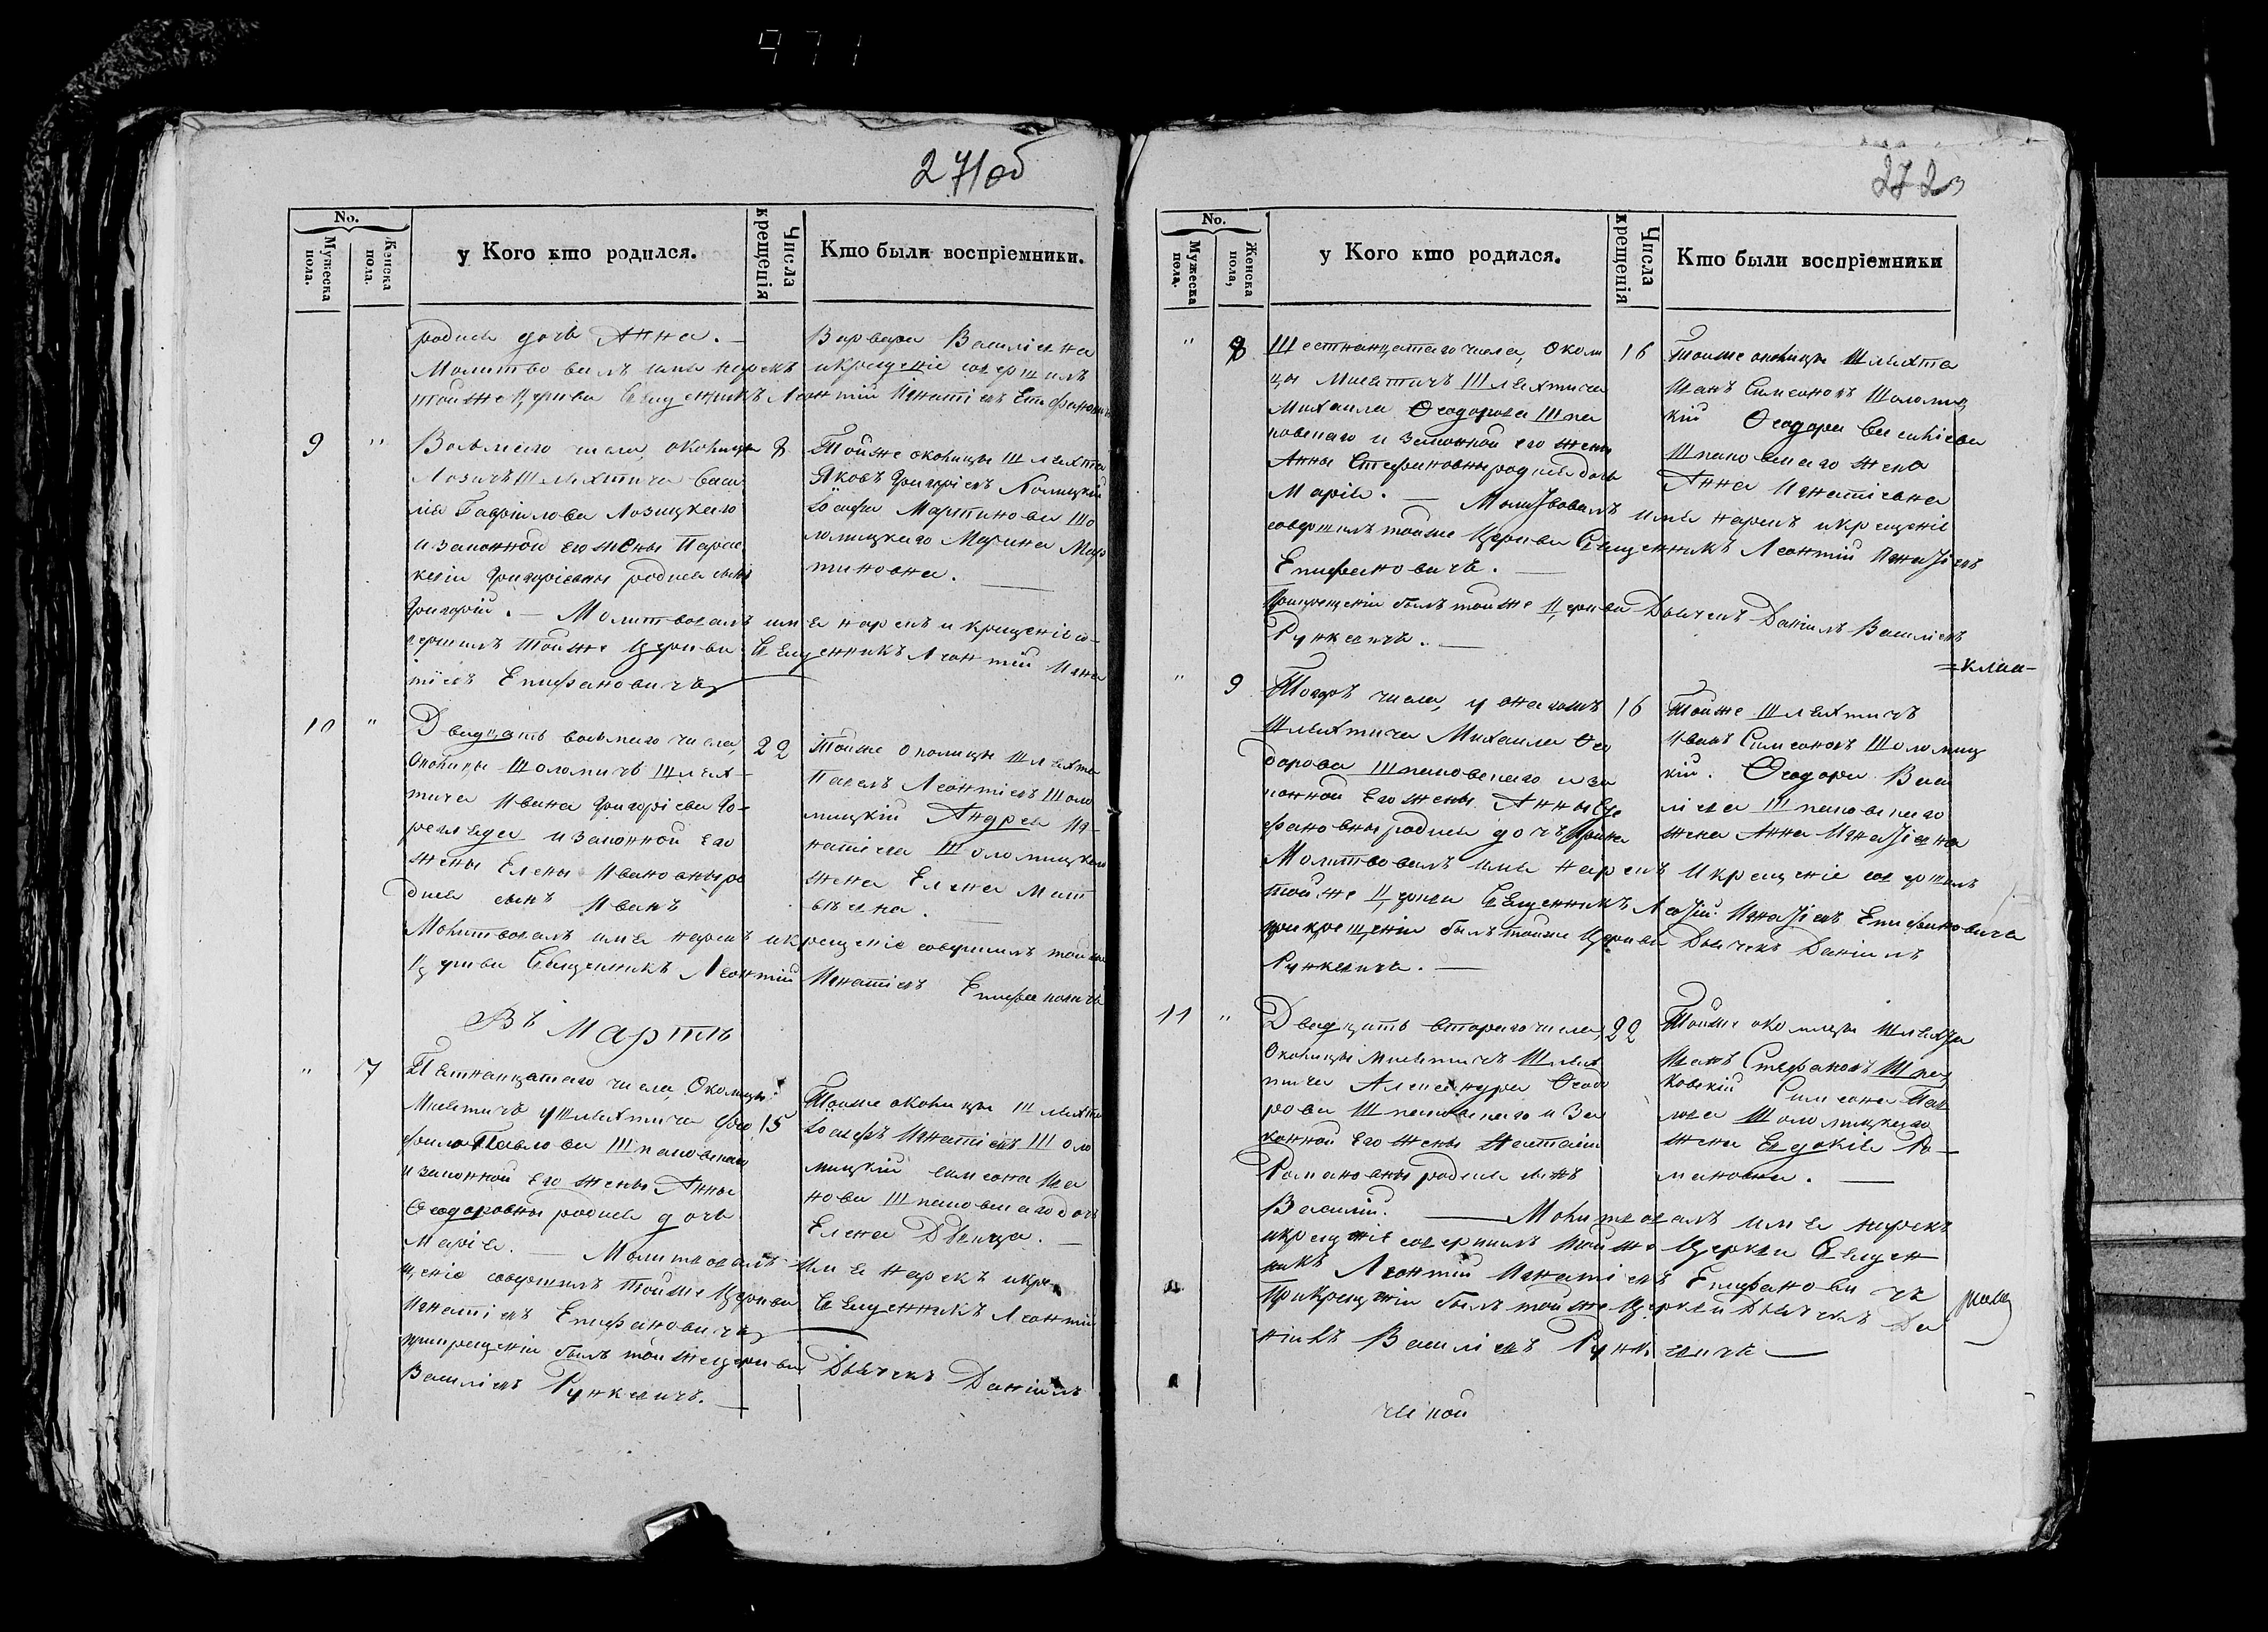 971
271об
No.
Мужеска пола.
Женска пола.
у Кого кто родился.
Числа крещенія
Кто были воспріемники.
родиса дочь Анна. —
Молитвовалъ имя нарекъ
тойже Церкви Священникъ Леонтій Игнатіевъ Епифановичъ
Варвара Василіевна
и крещеніе совершилъ
9 " Восьмаго числа, околицы 8
Лозичъ Шляхтича Васи
лія Гавріилова Лозицкаго
и законной его жены Парас
кевіи Григоріевны родися сынъ
Григорій. — Молитвовалъ имя нарекъ и крещеніе со-
вершилъ тойже Церкви Священникъ Леонтій Игна
тіевъ Епифановичъ
Тойже околицы Шляхта
Яковъ Григоріевъ
Іосифа Мартинова Шо
ломицкаго Марина Мар
тиновна. —
10 " Двадцать восьмаго числа, 22
Околицы Шоломичъ Шлях-
тича Ивана Григоріева Го-
и законной его
жены Елены Ивановны ро
дися сынъ Иванъ
Молитвовалъ имя нарекъ и крещеніе совершилъ тойже
Церкви Священникъ Леонтій Игнатіевъ Епифановичъ
Тойже околицы Шляхта
Павелъ Леонтіевъ Шоло
мицкій Андрея Иг-
натіева Шоломицкаго
жена Елена Мат
вѣевна.
Въ Мартѣ
" 7 Пятнанцатаго числа, Околицы
Милевичъ у Шляхтича Фео 15
фила Павлова Шпаковскаго
и законной его жены Анны
Ѳеодоровны родися дочь
Марія. — Молитвовалъ имя нарекъ и кре
щеніе совершилъ тойже Церкви Священникъ Леонтій
Игнатіевъ Епифановичъ
прикрещеніи былъ тойже церкви Дьячекъ Даніилъ
Василіевъ Рункевичъ. —
Тойже околицы Шляхта
Іосифъ Игнатіевъ Шоло
мицкій Симеона Ива
нова Шпаковскаго дочь
Елена Дѣвица. —
272
No.
Мужеска пола.
Женска пола,
у Кого кто родился.
Числа крещенія
Кто были воспріемники
" 8 Шестнанцатаго числа, Околи 16
цы Милевичъ Шляхтича
Михаила Ѳеодорова Шпа
ковскаго и законной его жены
Анны Стефановны родися дочь
Марія. — Молитвовалъ имя нарекъ и крещеніе
совершилъ тойже Церкви Священникъ Леонтій Игнатіевъ
Епифановичъ. —
При крещеніи былъ тойже Церкви Дьячекъ Даніилъ Василіевъ
Рункевичъ. —
Тойже околицы Шляхта
Иванъ Симеоновъ Шоломиц
кій Ѳеодора Василіева
Шпаковскаго жена
Анна Игнатіевна
" 9 Тогожъ числа, у онагожъ 16
Шляхтича Михаила Ѳео
дорова Шпаковскаго и за
конной Его жены Анны Сте
фановны родися дочь
Молитвовалъ имя нарекъ и крещеніе совершилъ
той же Церкви Священникъ Леонтій Игнатіевъ Епифановичъ
при крещеніи былъ тойже Церкви Дьячекъ Даніилъ
Рункевичъ. —
Тойже Шляхтичъ
Иванъ Симеоновъ Шоломиц
кій. Ѳеодора Васи
ліева Шпаковскаго
жена Анна Игнатіевна
11 " Двадцать втораго числа, 22
Околицы Милевичъ Шлях
тича Александра Ѳеодо
рова Шпаковскаго и За
конной Его жены Настасіи
Романовны родися сынъ
Василій. — Молитвовалъ имя нарекъ
и крещеніе совершилъ тойже Церкви Священ
никъ Леонтій Игнатіевъ Епифановичъ
При крещеніи былъ тойже Церкви Дьячекъ Да
ніилъ Василіевъ Рункевичъ —
Тойже околицы Шляхта
Иванъ Стефановъ Шпа
ковскій Симеона Пав
лова Шоломицкаго
жена Евдокія Ро-
мановна. —